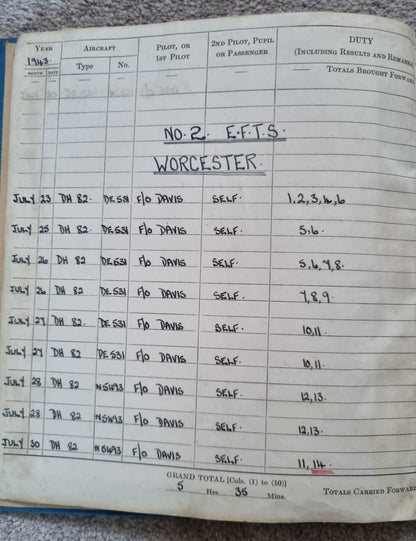 YEAR AIRCRAFT PILOT, OR 1ST PILOT 2ND PILOT, PUPIL OR PASSENGER DUTY (INCLUDING RESULTS AND REMARK
1943. MONTH DATE Type No. TOTALS BROUGHT FORWAR
NO. 2. E.F.T.S.
WORCESTER.
JULY 23 DH 82. DE531 F/O DAVIS SELF. 1,2,3,4,6
JULY 25 DH 82. DE531 F/O DAVIS SELF. 5,6.
JULY 26 DH 82 DE531 F/O DAVIS SELF. 5,6,7,8.
JULY 26 DH 82 DE531 F/O DAVIS SELF. 7,8,9.
JULY 27 DH 82. DE531 F/O DAVIS SELF. 10,11.
JULY 27 DH 82 DE531 F/O DAVIS SELF. 10,11.
JULY 28 DH 82 N5493 F/O DAVIS SELF. 12,13.
JULY 28 DH 82 N5493 F/O DAVIS SELF. 12.13.
JULY 30 DH 82 N5493 F/O DAVIS SELF. 11, 14.
GRAND TOTAL [Cols. (1) to (10)]
5 Hrs. 35 Mins. TOTALS CARRIED FORWARD